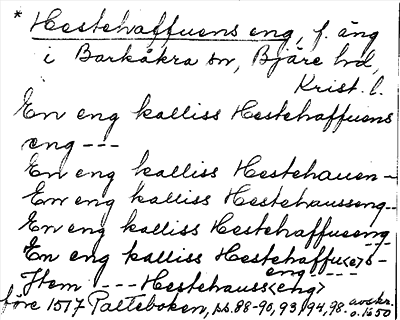 * Hestehaffuens eng, f. äng
i Barkåkra sn, Bjäre hd,
Krist. l.
En eng kalliss Hestehaffuens
eng ---
En eng kalliss Hestehauen --
En eng kalliss Hestehausseng --
En eng kalliss Hestehaffueng
---
En eng kalliss Hestehaffu<e>s-
eng ---
Item --- Hestehauss<eng>
före 1517 Palteboken, ss. 88-90, 93, 94, 98. avskr.
o. 1650